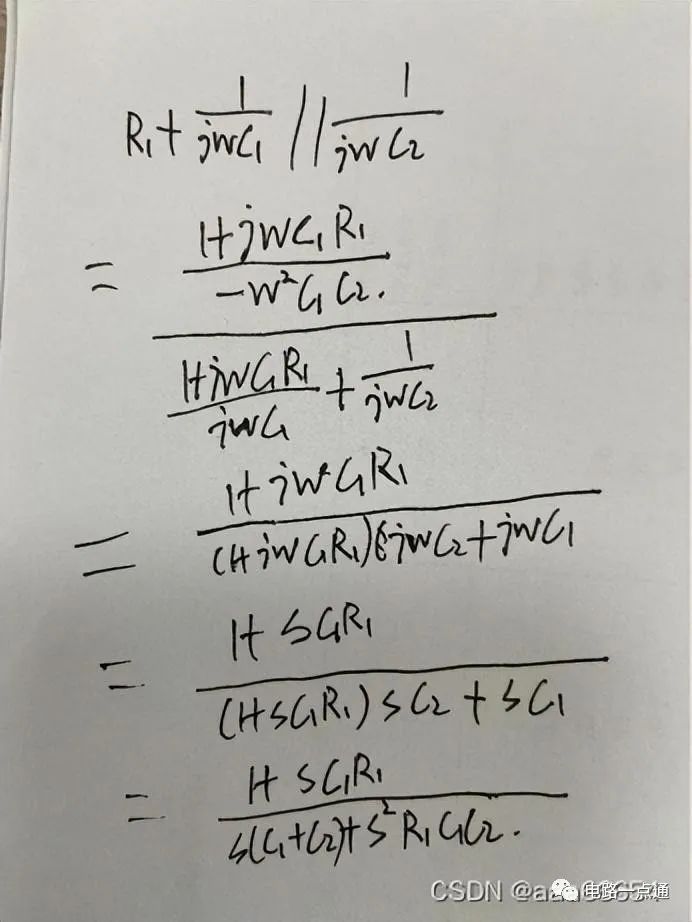 R₁ + 1/(jwC₁) // 1/(jwC₂)
= ((1+jwC₁R₁)/(-w²C₁C₂.)) / ((1+jwC₁R₁)/(jwC₁) + 1/(jwC₂))
= (1+jwC₁R₁) / ((1+jwC₁R₁)(jwC₂+jwC₁)
= (1+SC₁R₁) / ((1+SC₁R₁)SC₂+SC₁)
= (1+SC₁R₁) / (S(C₁+C₂)+S²R₁C₁C₂.)
CSDN 电路一点通